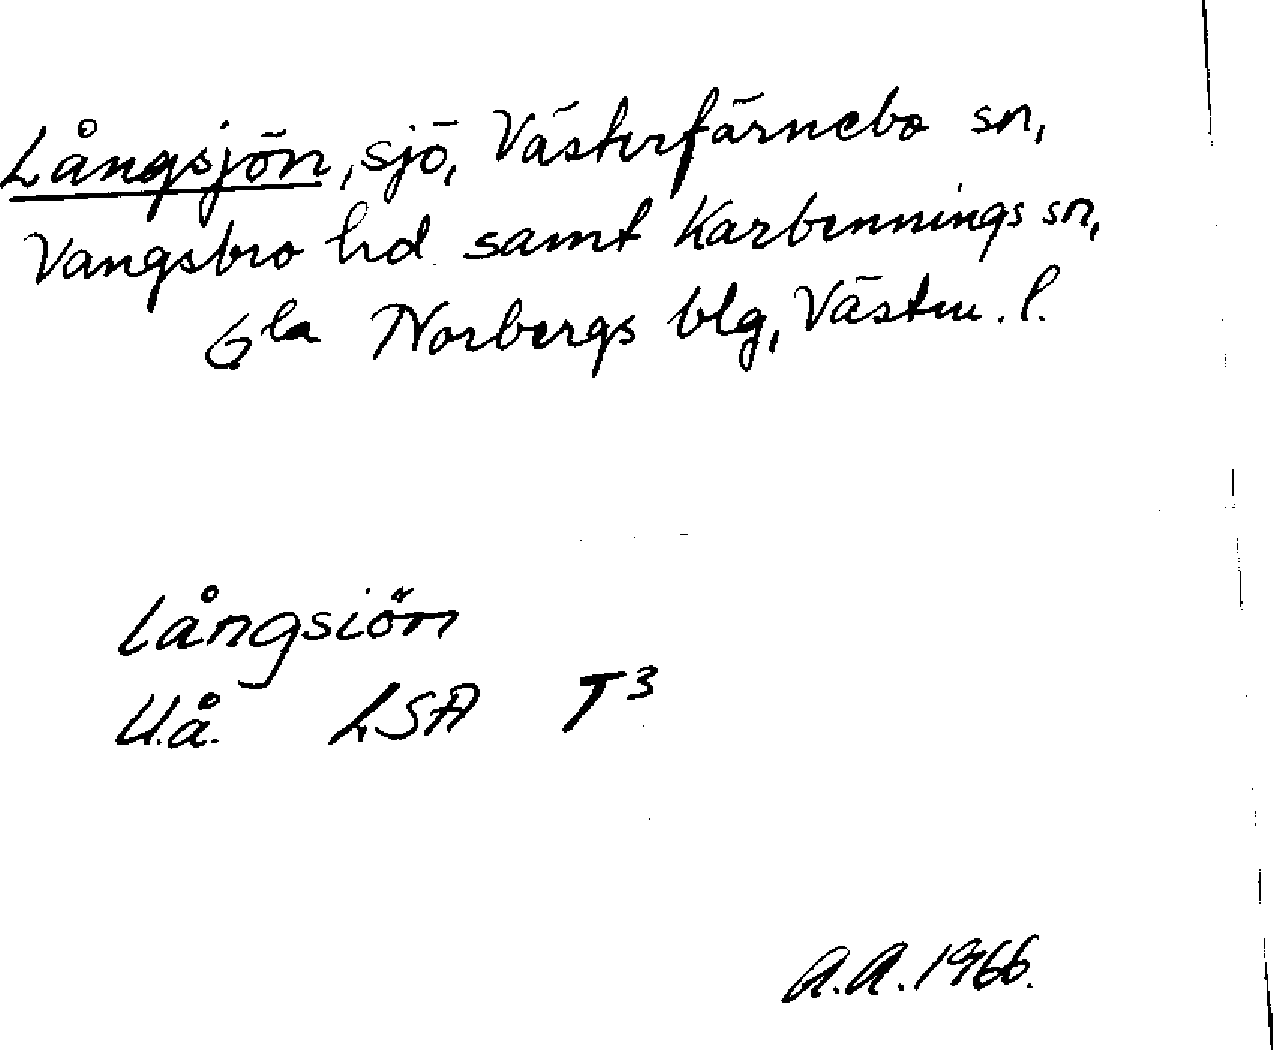 Långsjön, sjö, Västerfärnebo sn,
Vangsbro hd samt Karbennings sn,
Gla Norbergs blg, Västm. l.
Långsiön
U.å. LSA T3
A.A. 1966.